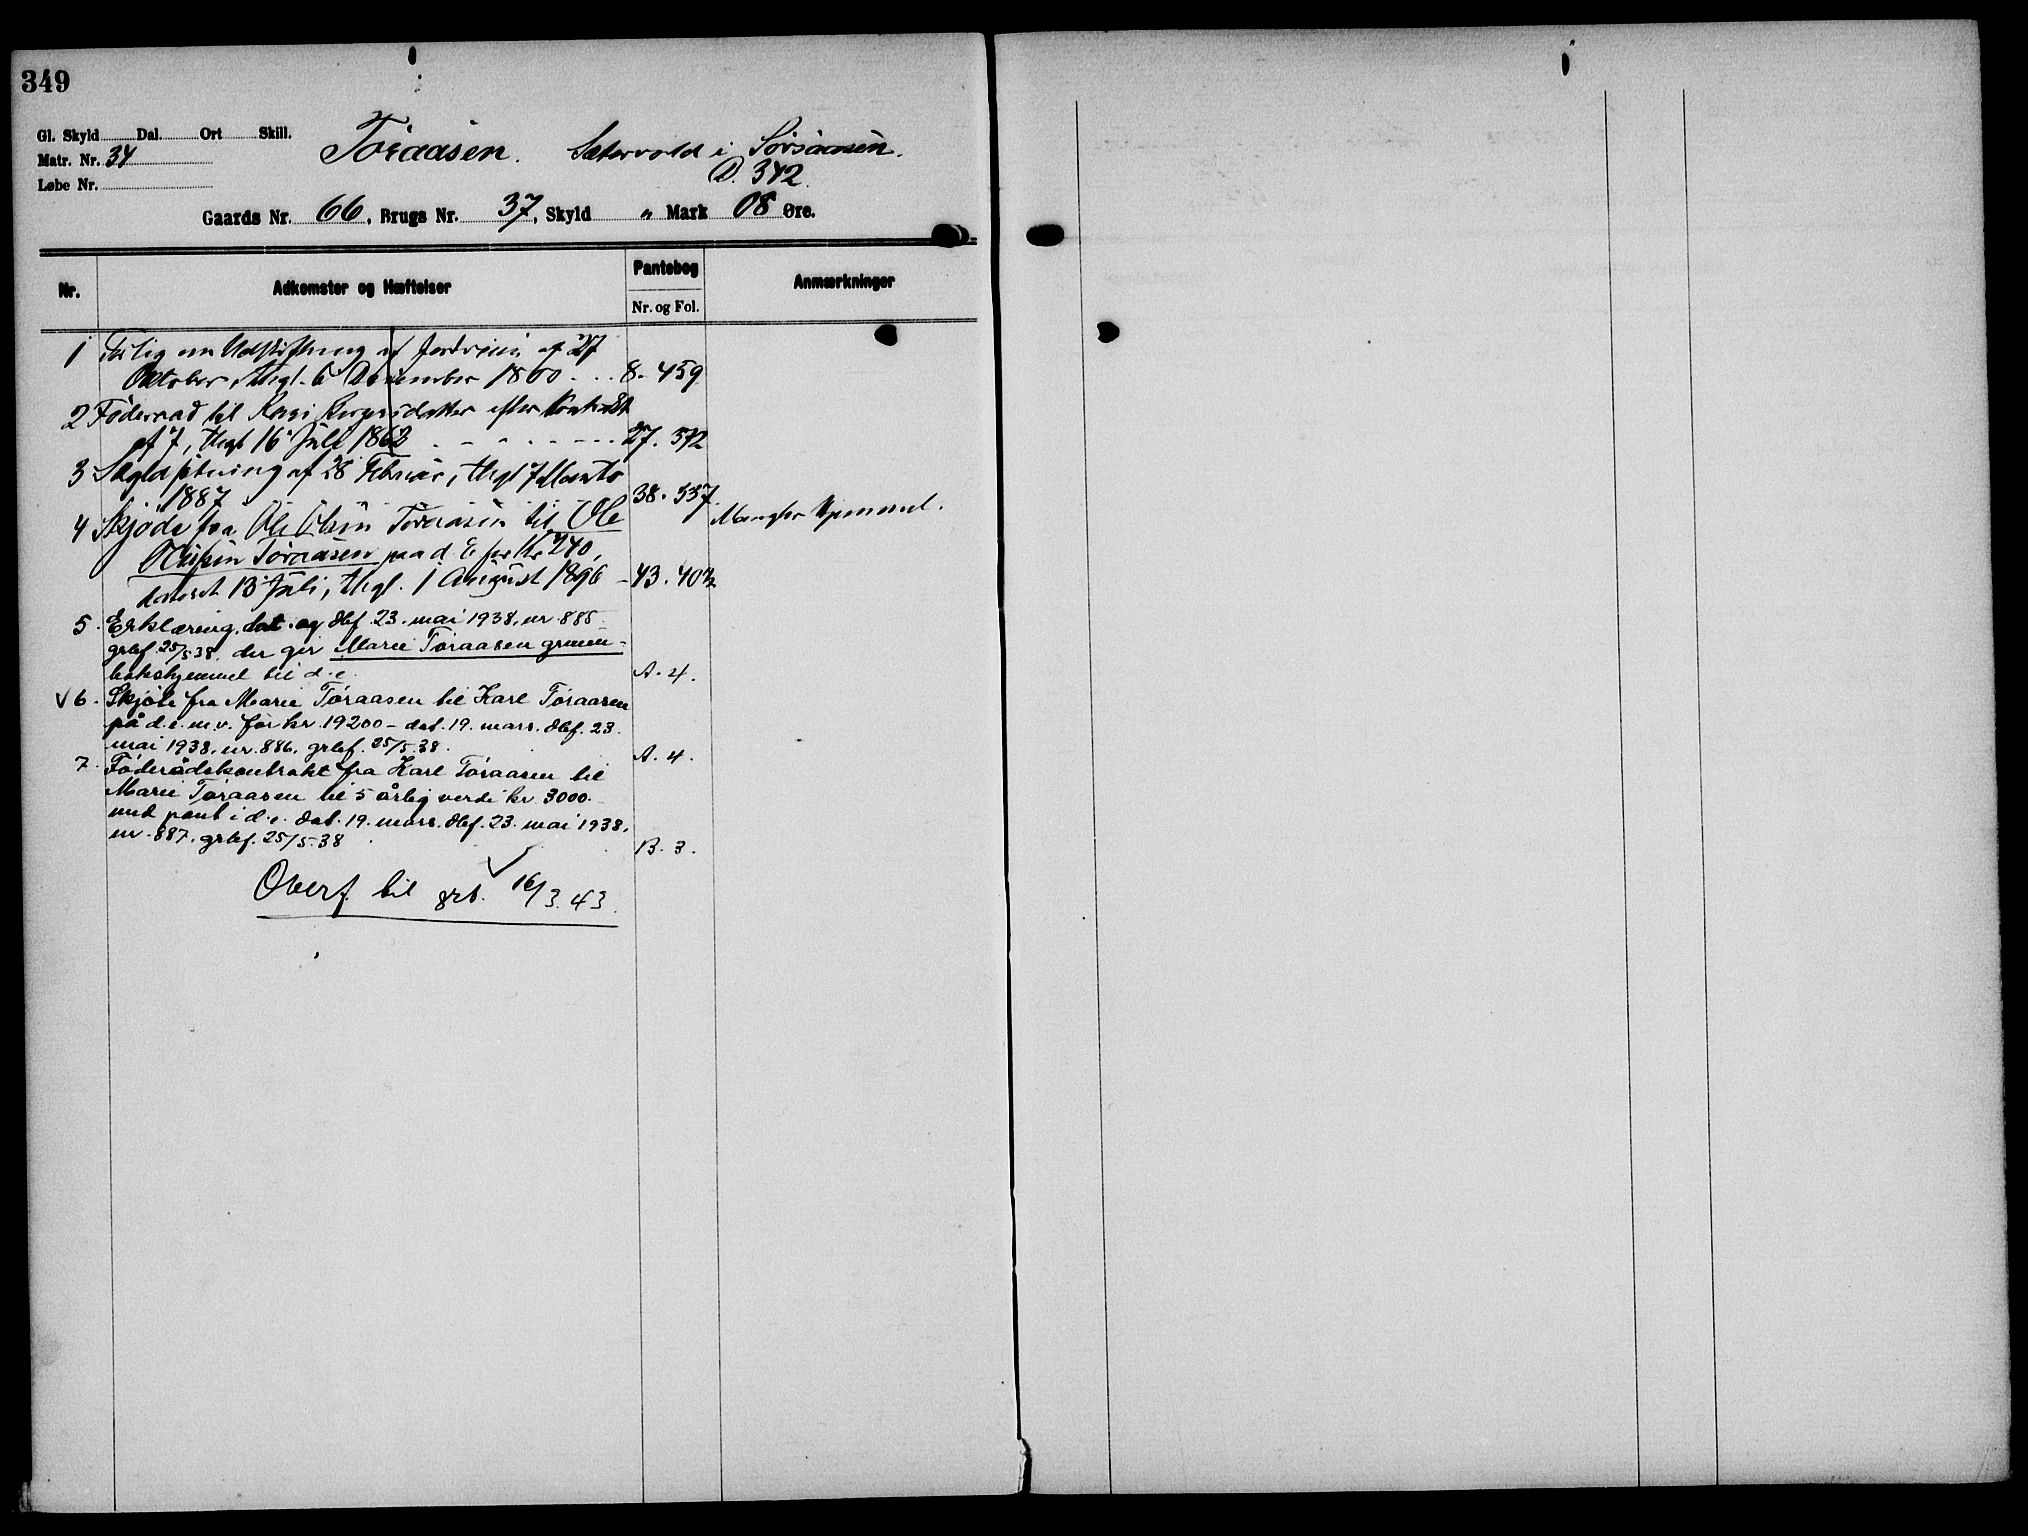 349
Gl. Skyld Dal. Ort Skill.
Matr. Nr. 34
Løbe Nr.
Toraasen. Sætervold i Sørsaasen.
D. 342.
Gaards Nr. 66, Brugs Nr. 37, Skyld " Mark 08 Øre.
Nr. Adkomster og Hæftelser Pantebog Anmærkninger
Nr. og Fol.
1 Forlig om Udskiftning af af 27
Oktober, thgl. 6 December 1860 8 - 459
2 Føderaad til efter Kontrakt
af 7, thgl 16 Juli 1862 27. 572
3 af 28 Februar, thgl 7 Marts
1887 38. 537.
4 Skjøde fra Ole Olsen Toraasen til Ole
Olsen Toraasen paa d. E for Kr 240, Mangler Hjemmel.
dateret 13 Juli, thgl. 1 August 1896 - 43. 407
5. Erklæring, dat. og dbf. 23. mai 1938, nr. 885
grbf. 25/5.38. der gir Marie Toraasen grunn-
bokshjemmel til d.e. A. 4.
√ 6. Skjøte fra Marie Toraasen til Karl Toraasen
på d.e. m.v. for kr. 19200 - dat. 19. mars. dbf. 23.
mai 1938, nr. 886, grbf. 25/5.38. A. 4.
7. Føderådskontrakt fra Karl Toraasen til
Marie Toraasen til 5 årlig verdi kr 3000.-
med pant i d.e. dat. 19. mars. dbf. 23. mai 1938.
nr. 887. grbf. 25/5.38 B. 3.
Overf. til grb. 16/3.43.